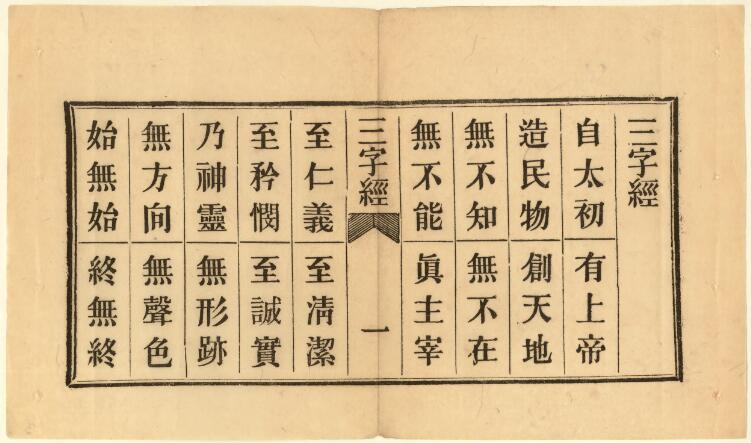 三字經
自太初 有上帝
造民物 創天地
無不知 無不在
無不能 眞主宰
三字經 一
至仁義 至淸潔
至矜憫 至誠實
乃神靈 無形跡
無方向 無聲色
始無始 終無終